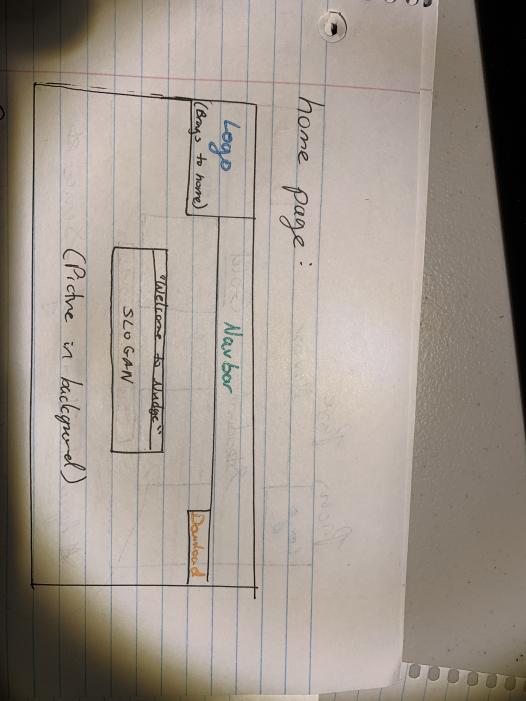 home page:
Logo
(Brings to home)
Navbar
Download
"Welcome to Nudge"
SLOGAN
(Picture in background)